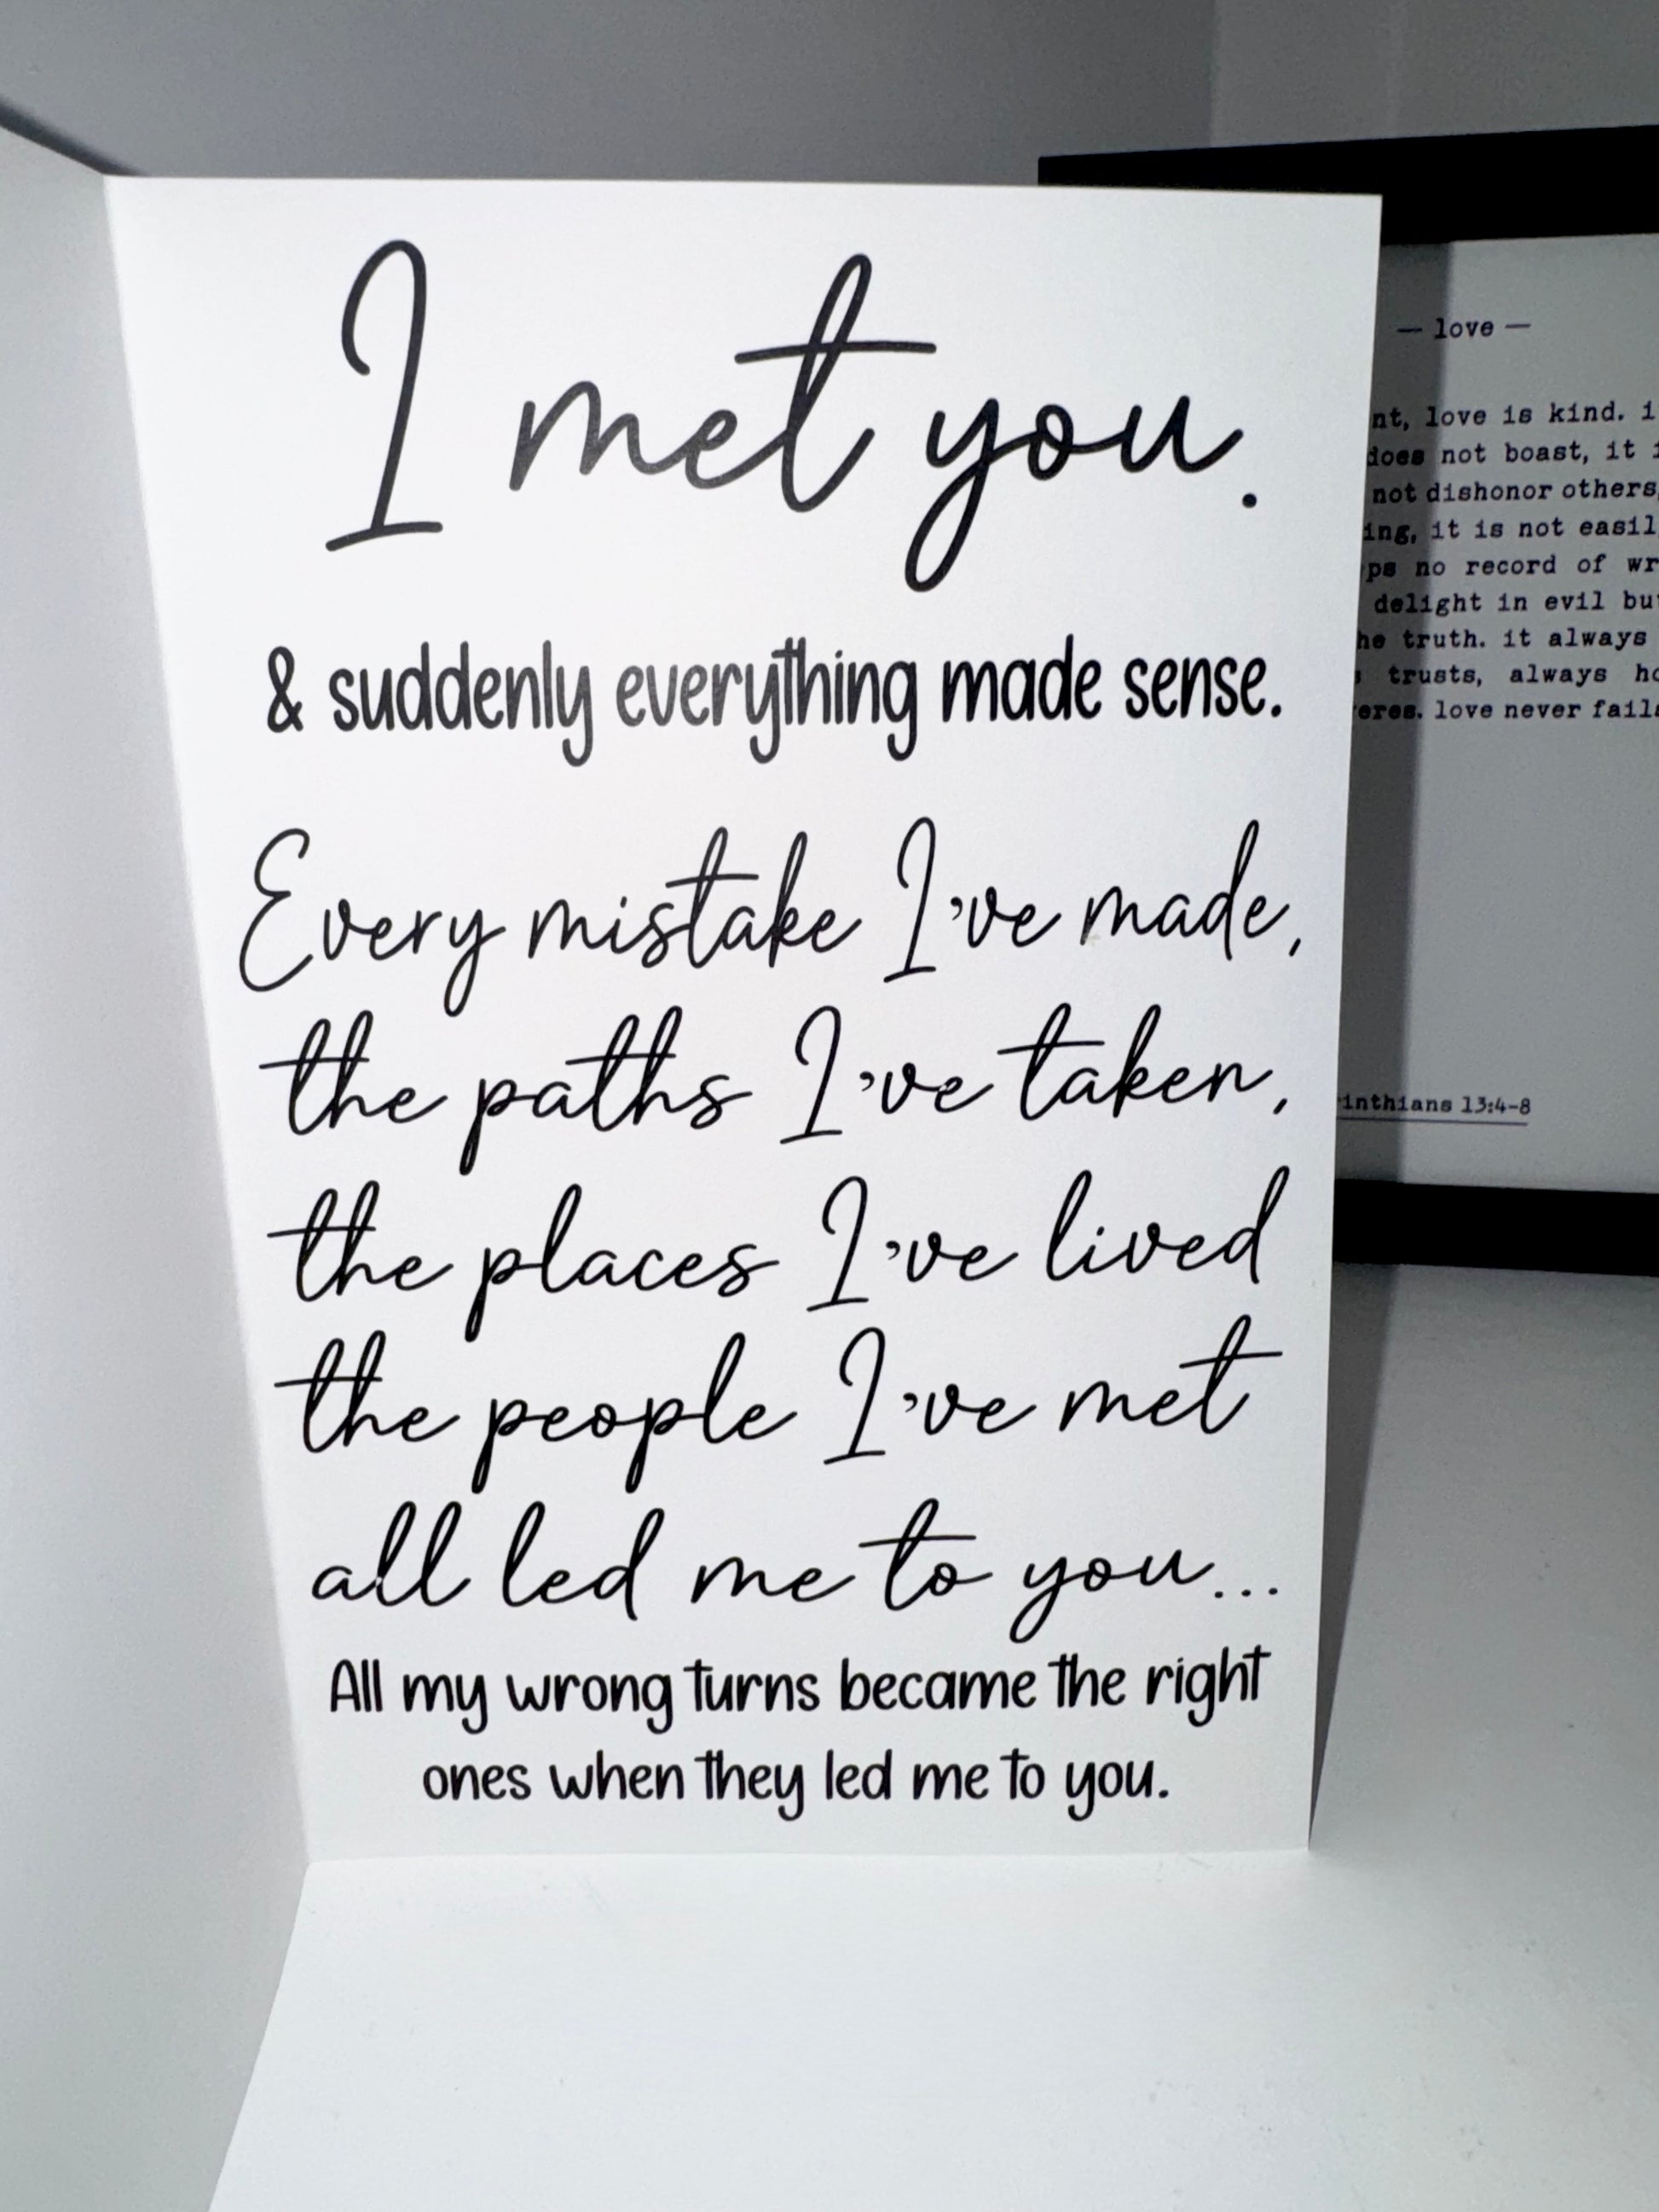 I met you.
& suddenly everything made sense.
Every mistake I've made,
the paths I've taken,
the places I've lived
the people I've met
all led me to you...
All my wrong turns became the right
ones when they led me to you.
— love —
love is kind.
not boast, it
not dishonor others,
it is not
no record of
delight in evil
truth. it always
trusts, always
love never
13:4-8